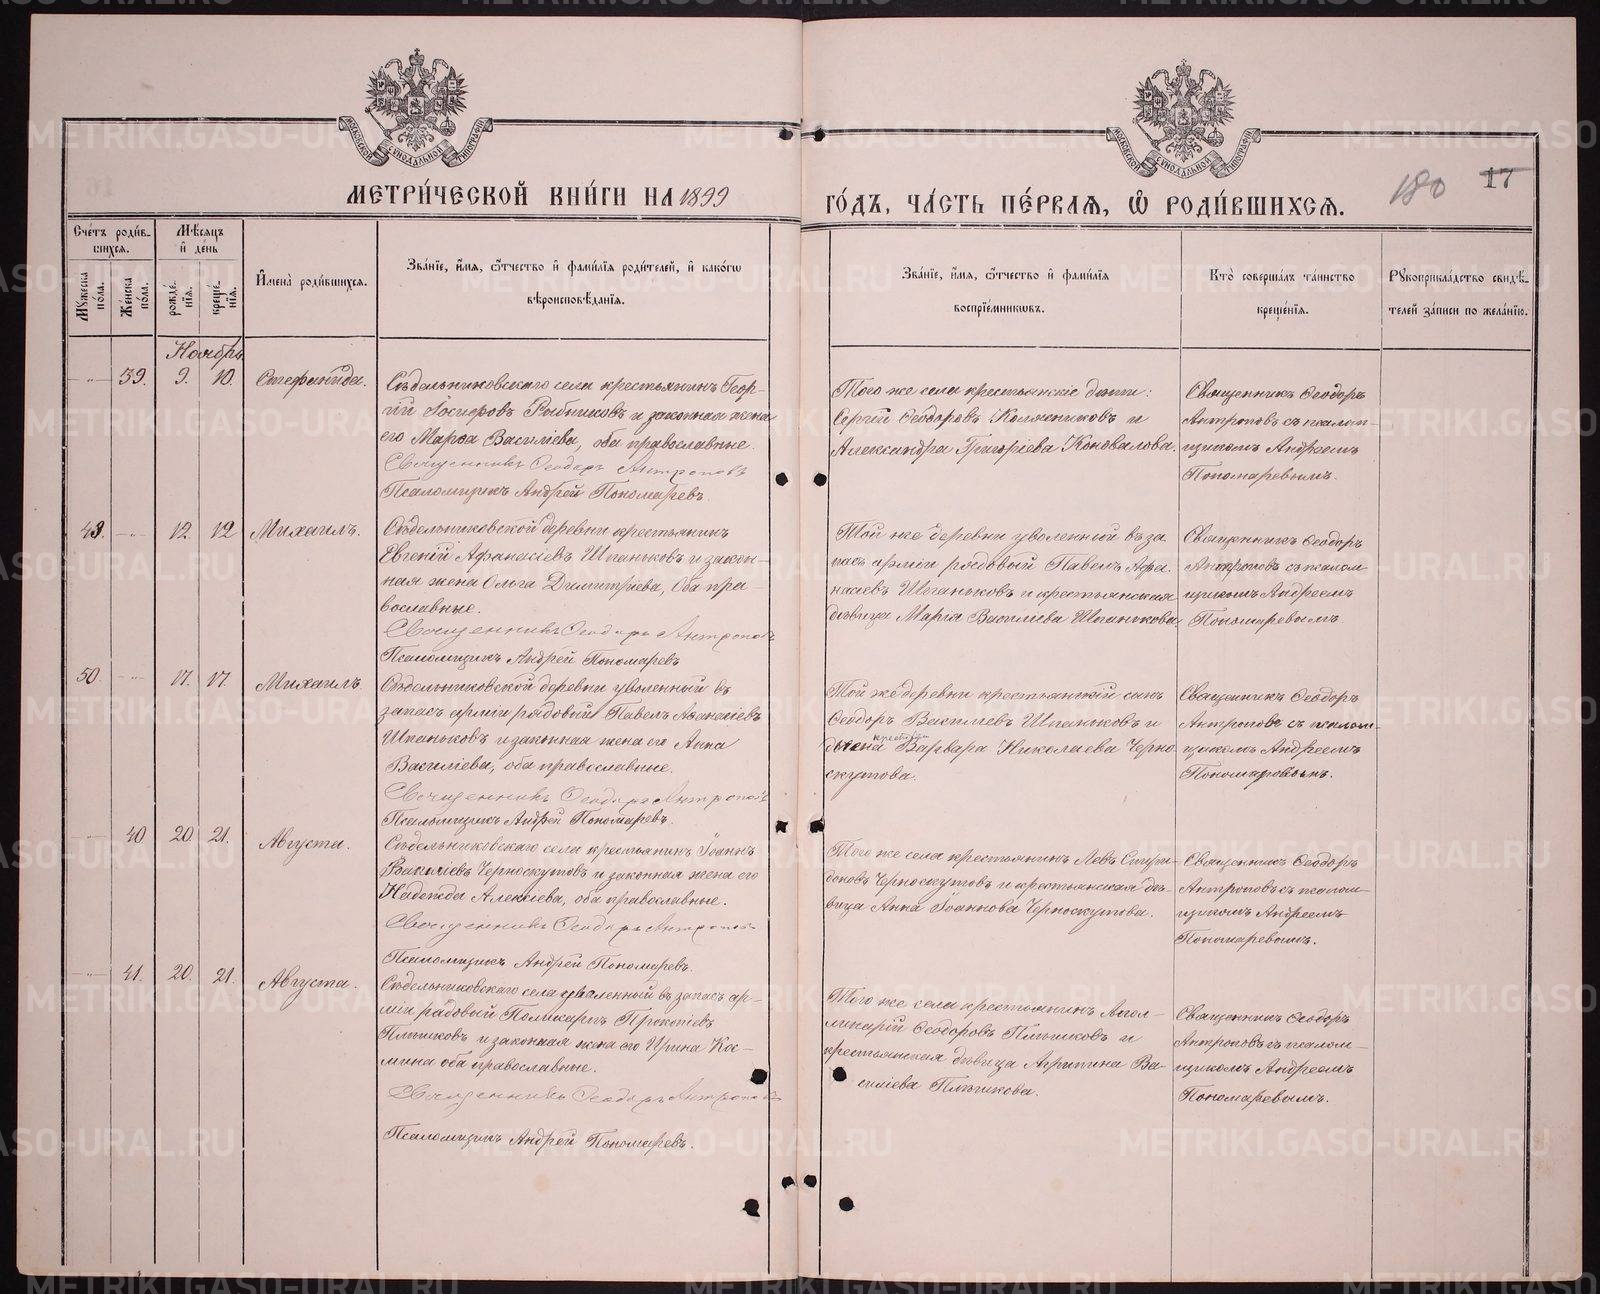 МЕТРИ́ЧЕСКОЙ КНИ́ГИ НА 1899
ГО́ДЪ, ЧА́СТЬ ПЕ́РВАЯ, Ѡ҆ РОДИ́ВШИХСЯ.
180 17
Сче́тъ роди́в-
шихся.
Мѣ́сяцъ
и҆ де́нь
Му́жеска
по́ла.
Же́нска
по́ла.
рожде́-
нїя.
креще́-
нїя.
И҆мена̀ роди́вшихся.
Зва́нїе, и҆́мя, ѻ҆́тчество и҆ фами́лїя роди́телей, и҆ како́гѡ
вѣроисповѣ́данїя.
Зва́нїе, и҆́мя, ѻ҆́тчество и҆ фами́лїя
воспрїе́мникѡвъ.
Кто̀ соверша́лъ та́инство
креще́нїя.
Рукоприкла́дство свидѣ́-
телей за́писи по жела́нїю.
Ноябрь
39. 9. 10. Стефанида.
Сѣдельниковскаго села крестьянинъ Геор-
гій Іосифовъ Рыбниковъ и законная жена
его Марѳа Василіева, оба православные.
Священникъ Ѳеодоръ Антроповъ
Псаломщикъ Андрей Пономаревъ
Того же села крестьянскіе дѣти:
Сергѣй Ѳеодоровъ и
Александра Григоріева Коновалова.
Священникъ Ѳеодоръ
Антроповъ съ псалом-
щикомъ Андреемъ
Пономаревымъ.
12. 12 Михаилъ.
Сѣдельниковской деревни крестьянинъ
Евгеній Аѳанасіевъ Шпаньковъ и закон-
ная жена Ольга Димитріева, оба пра-
вославные.
Священникъ Ѳеодоръ Антроповъ
Псаломщикъ Андрей Пономаревъ
Той же деревни уволенный въ за-
пасъ арміи рядовый Павелъ Аѳа-
насіевъ Шпаньковъ и крестьянская
дѣвица Марія Василіева Шпанькова
Священникъ Ѳеодоръ
Антроповъ съ псалом-
щикомъ Андреемъ
Пономаревымъ.
50. 17. 17. Михаилъ.
Сѣдельниковской деревни уволенный въ
запасъ арміи рядовый Павелъ Аѳанасіевъ
Шпаньковъ и законная жена его Анна
Василіева, оба православные.
Священникъ Ѳеодоръ Антроповъ
Псаломщикъ Андрей Пономаревъ.
Той же деревни крестьянскій сынъ
Ѳеодоръ Василіевъ Шпаньковъ и
Варвара Николаева Черно-
скутова.
Священникъ Ѳеодоръ
Антроповъ съ псалом-
щикомъ Андреемъ
Пономаревымъ.
40 20. 21. Августа.
Сѣдельниковскаго села крестьянинъ Іоаннъ
Черноскутовъ и законная жена его
Надежда Алексіева, оба православные.
Священникъ Ѳеодоръ Антроповъ
Псаломщикъ Андрей Пономаревъ.
Того же села крестьянинъ Левъ Спири-
доновъ Черноскутовъ и крестьянская дѣ-
вица Анна Іоаннова Черноскутова.
Священникъ Ѳеодоръ
Антроповъ съ псалом-
щикомъ Андреемъ
Пономаревымъ.
41. 20. 21. Августа.
Сѣдельниковскаго села уволенный въ запасъ ар-
міи рядовый Поликарпъ Прокопіевъ
Плѣшковъ и законная жена его Ирина Кос-
мина оба православные.
Священникъ Ѳеодоръ Антроповъ
Псаломщикъ Андрей Пономаревъ.
Того же села крестьянинъ Апол-
линарій Ѳеодоровъ Плѣшковъ и
крестьянская дѣвица Агрипина Ва-
силіева Плѣшкова.
Священникъ Ѳеодоръ
Антроповъ съ псалом-
щикомъ Андреемъ
Пономаревымъ.
METRIKI.GASO-URAL.RU